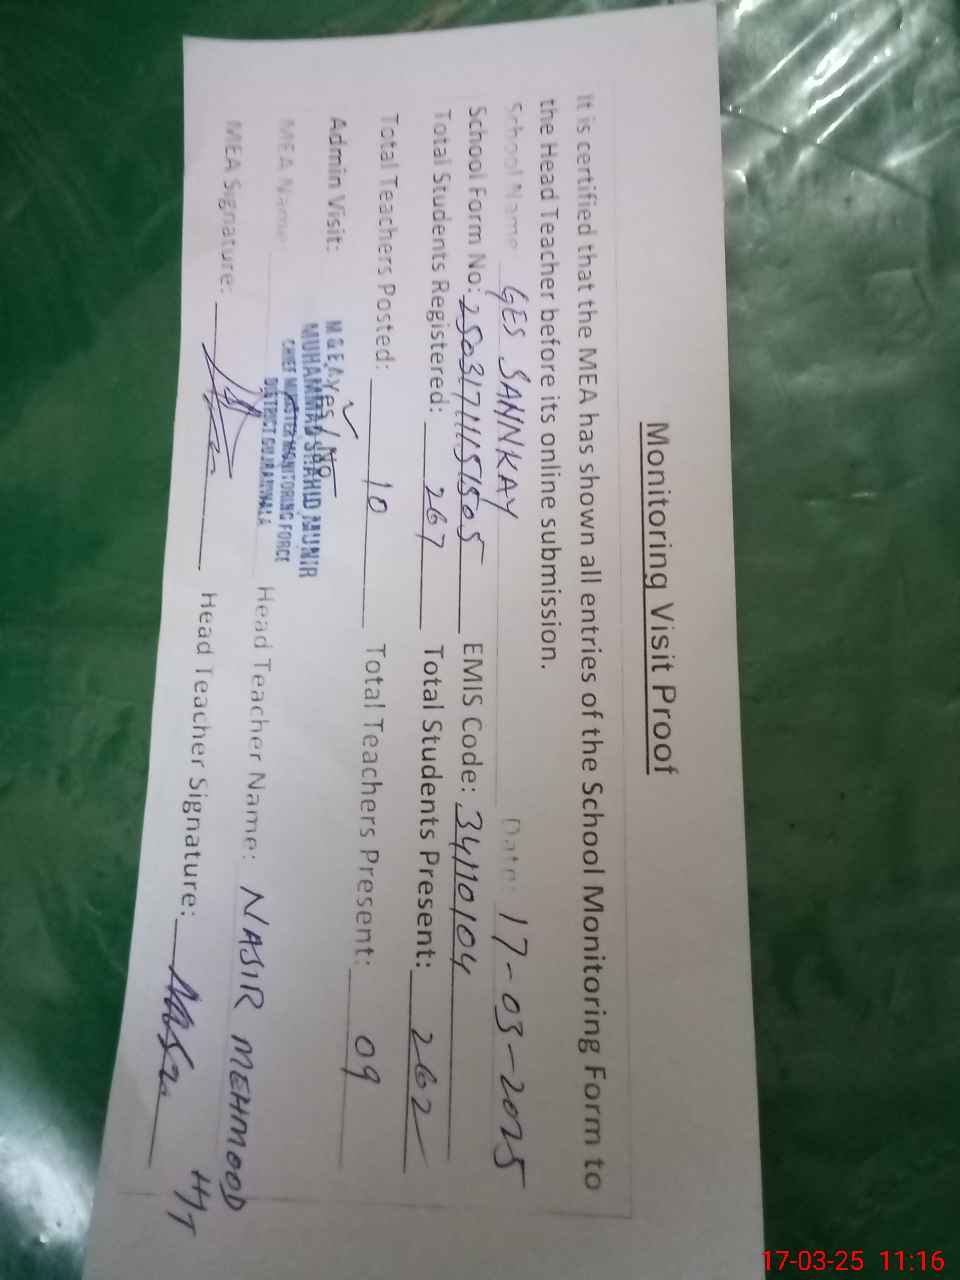 Monitoring Visit Proof
It is certified that the MEA has shown all entries of the School Monitoring Form to
the Head Teacher before its online submission.
School Name GES SANNKAY Date: 17-03-2025
School Form No: 25031711151505 EMIS Code: 34110104
Total Students Registered: 267 Total Students Present: 262
Total Teachers Posted: 10 Total Teachers Present: 09
Admin Visit: Yes / No
M&EA
MUHAMMAD SHAHID MUNIR
CHIEF MINISTER MONITORING FORCE
DISTRICT GUJRANWALA
MEA Name: Head Teacher Name: NASIR MEHMOOD H/T
MEA Signature: Head Teacher Signature:
17-03-25 11:16